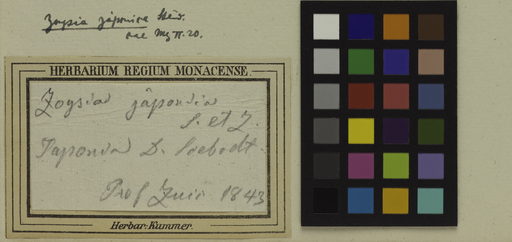 Zoysia japonica Steud.
HERBARIUM REGIUM MONACENSE.
Zoysia japonica
S. et Z.
Japonia D.
Prof Zucc. 1843
Herbar: Kummer.